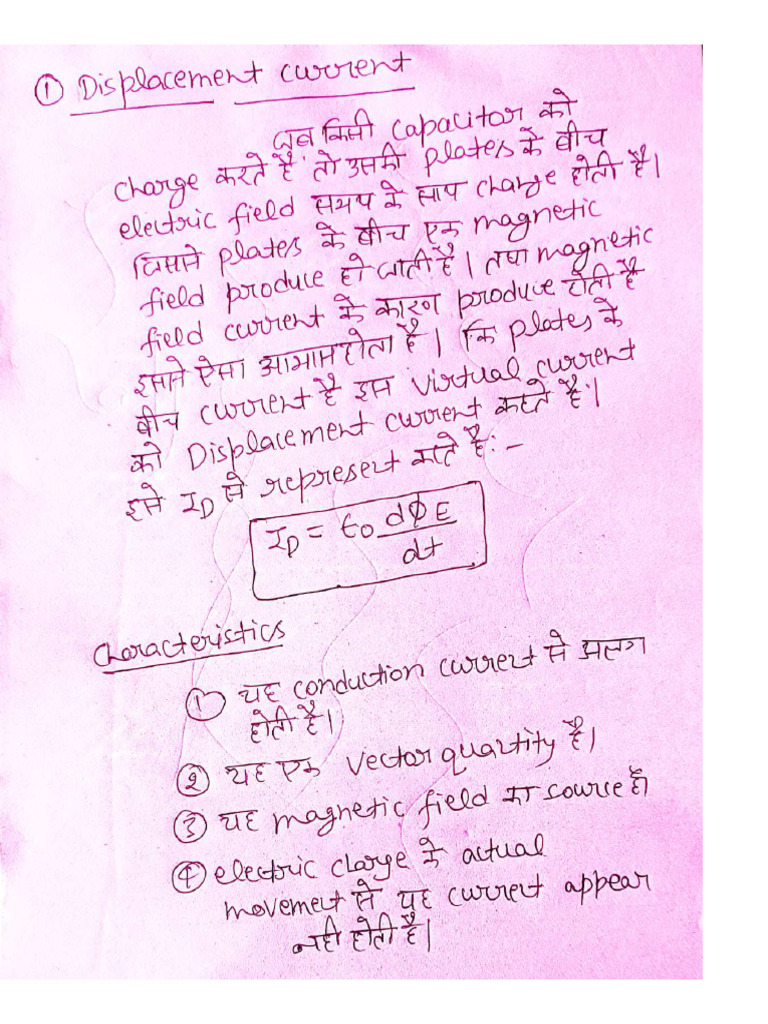 ① Displacement current
जब किसी capacitor को
charge करते हैं तो उसकी plates के बीच
electric field समय के साथ charge होती है।
जिससे plates के बीच एक magnetic
field produce हो जाती है। तथा magnetic
field current के कारण produce होती है
इससे ऐसा आभास होता है। कि plates के
बीच current है इस virtual current
को Displacement current कहते है।
इसे I_D से represent करते है:-
I_D = ε0 dϕE/dt
Characteristics
① यह conduction current से अलग
होती है।
② यह एक vector quantity है।
③ यह magnetic field का source है।
④ electric charge के actual
movement से यह current appear
नही होती है।